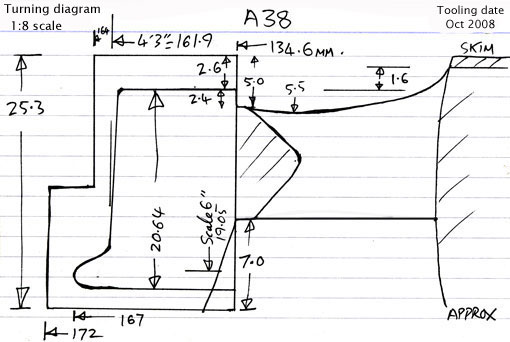 Turning diagram
1:8 scale
A38
Tooling date
Oct 2008
164
4'3"=161.9
134.6 MM.
SKIM
2.6
5.0
5.5
1.6
2.4
25.3
20.64
Scale 6"
19.05
7.0
APPROX
167
172